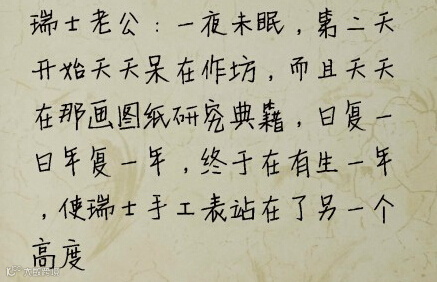 瑞士老公：一夜未眠，第二天
开始天天呆在作坊，而且天天
在那画图纸研究典籍，日复一
日年复一年，终于在有生一年
，使瑞士手工表站在了另一个
高度